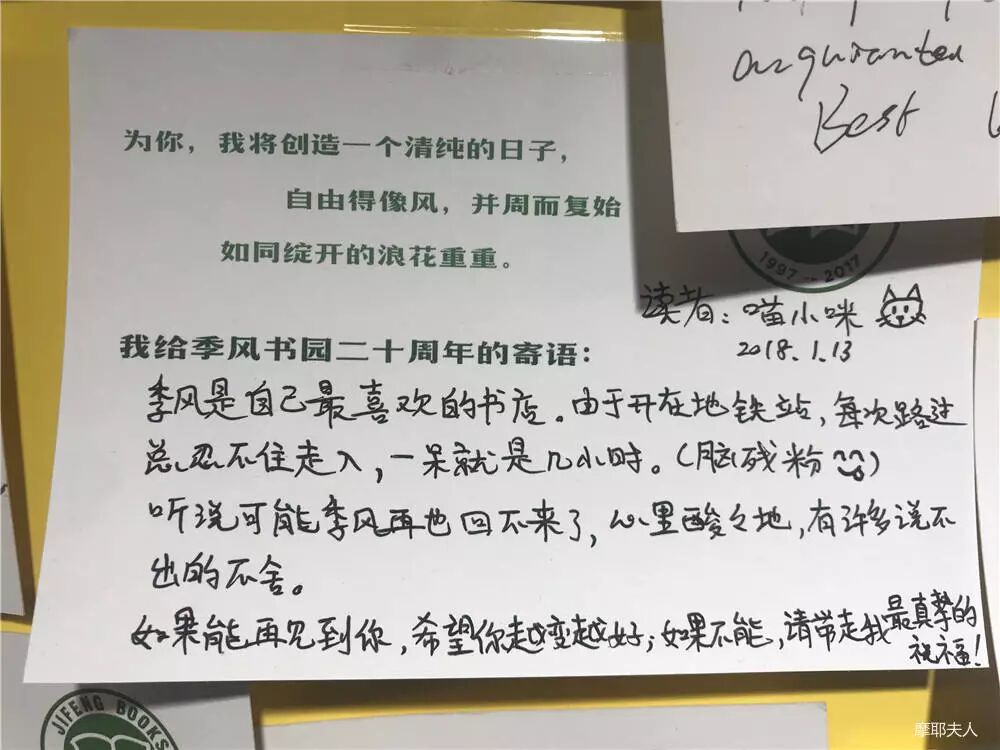 acquainted
Best
为你，我将创造一个清纯的日子，
自由得像风，并周而复始
如同绽开的浪花重重。
1997--2017
读者：喵小咪
2018.1.13
我给季风书园二十周年的寄语：
季风是自己最喜欢的书店。由于开在地铁站，每次路过
总忍不住走入，一呆就是几小时。（脑残粉）
听说可能季风再也回不来了，心里酸々地，有许多说不
出的不舍。
如果能再见到你，希望你越变越好；如果不能，请带走我最真挚的
祝福！
JIFENG BOOKS
摩耶夫人